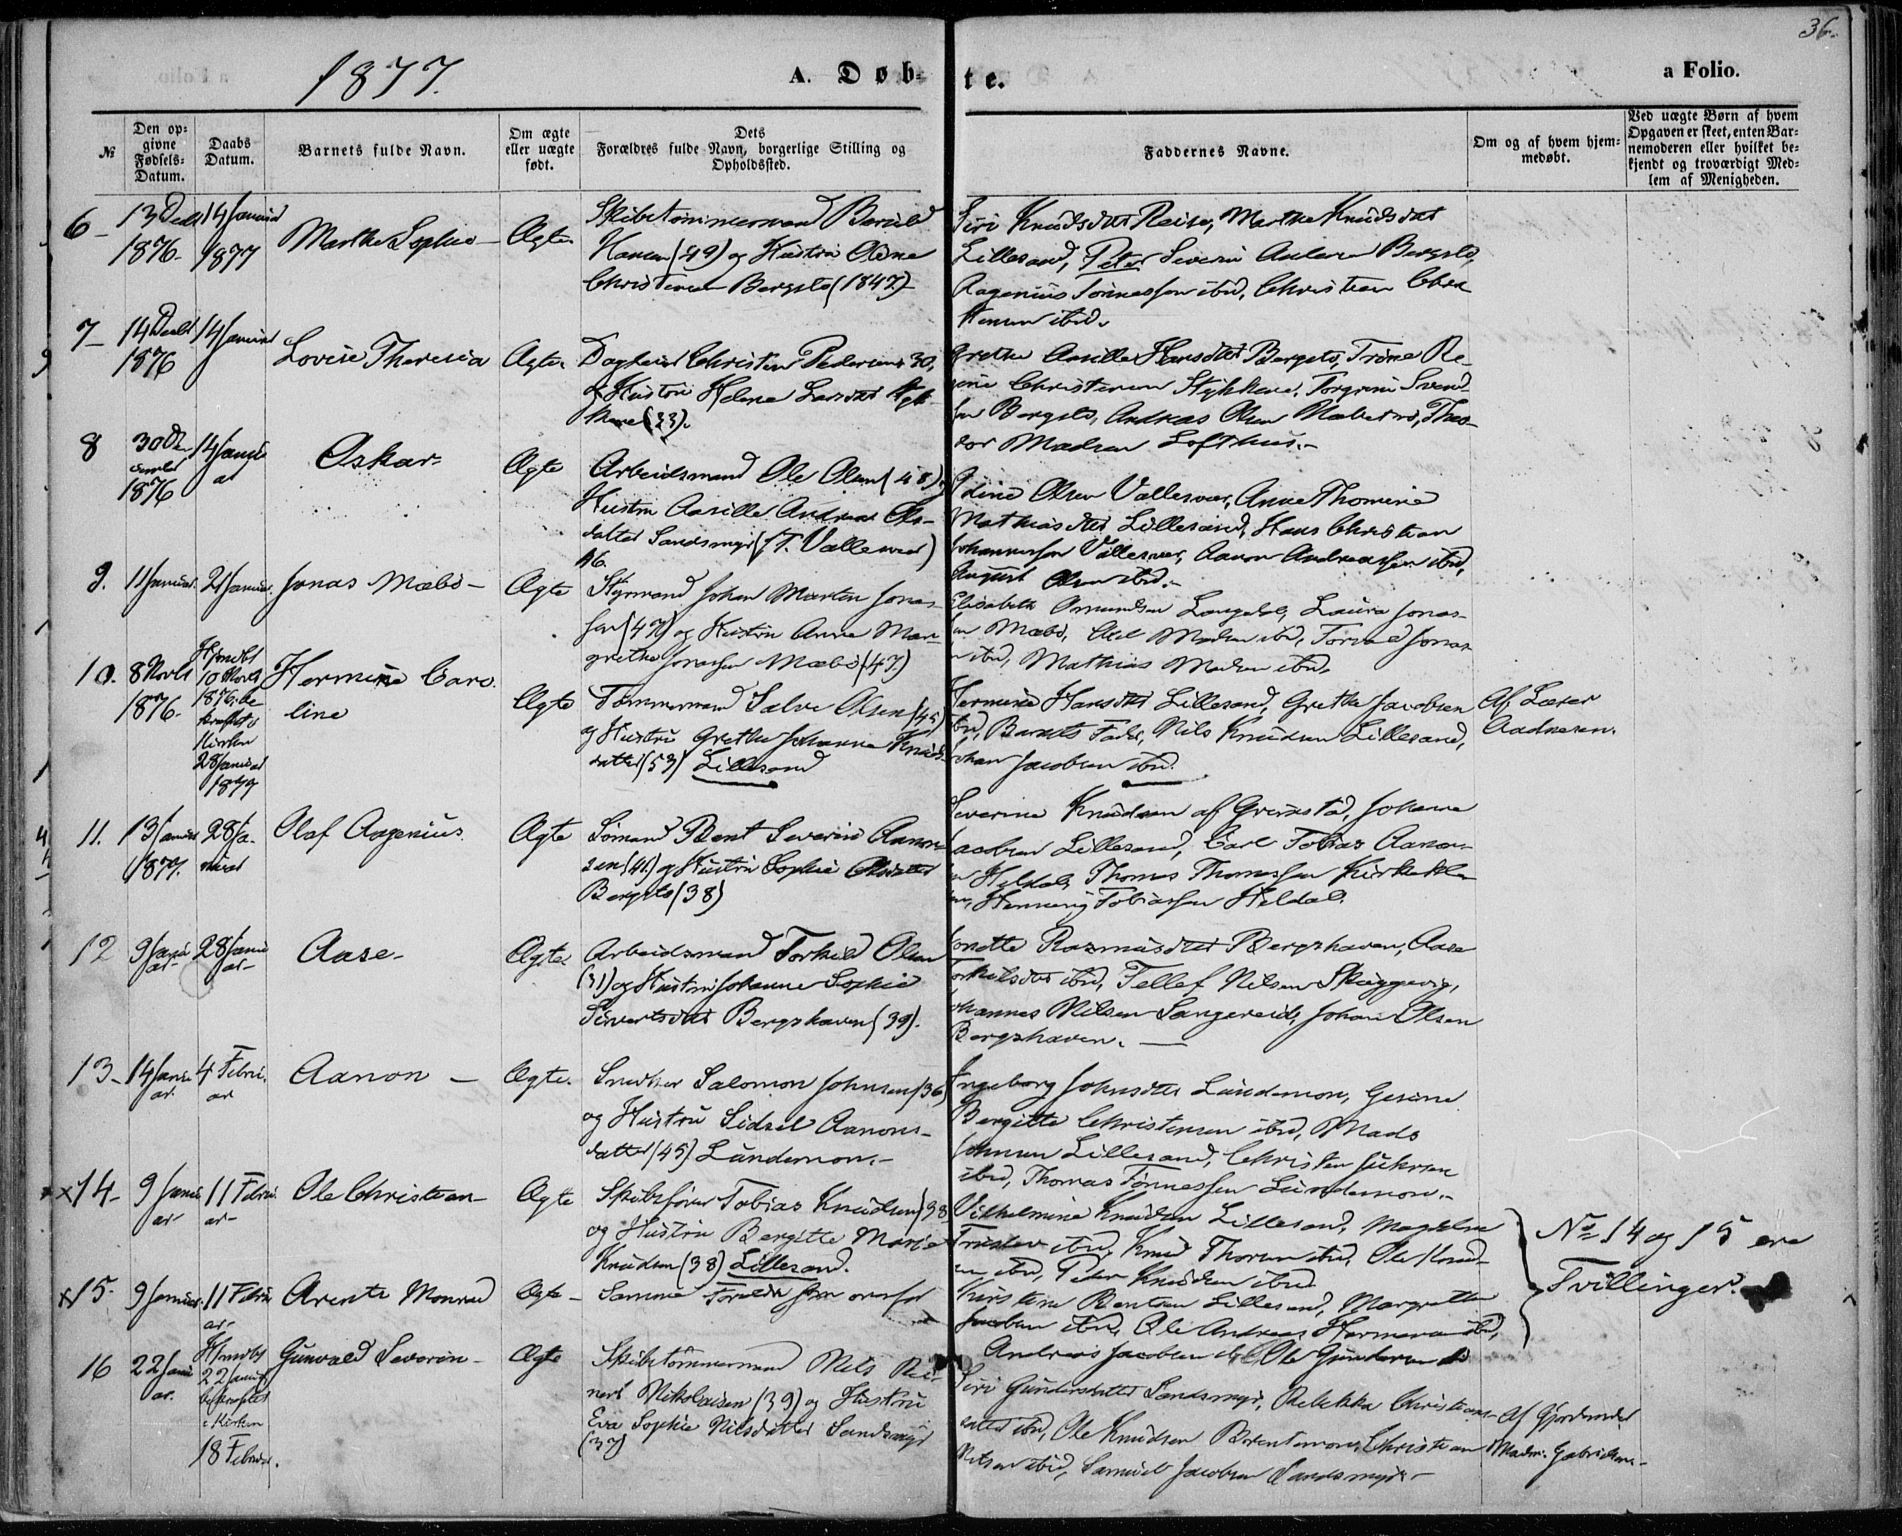 36.
1877.
A. Døb-
te.
a Folio.
№
Den op-
givne
Fødsels-
Datum.
Daabs
Datum.
Barnets fulde Navn.
Om ægte
eller uægte
født.
Dets
Forældres fulde Navn, borgerlige Stilling og
Opholdssted.
Faddernes Navne.
Om og af hvem hjem-
medøbt.
Ved uægte Børn af hvem
Opgaven er skeet, enten Bar-
nemoderen eller hvilket be-
kjendt og troværdigt Med-
lem af Menigheden.
6 -
13 Decbr
1876 -
14 Januar
1877
Marthe Sophie -
Ægte
Skibstømmermand
Hansen (49) og Hustru Oline
Christensen Bergstø (1847)
Siri Knudsdtr Reise, Marthe Knudsdatr
Lillesand, Peter Severin Andersen Bergstø,
Aagenius Tønnessen ibid, Christian Chri
stensen ibid.
7 -
14 Decbr
1876
14 Januar
Lovise Theresia
Ægte
Christen Pedersen 30,
og Hustru Helene Larsdtr
(33).
Grethe Aasille Hansdtr Bergstø, Trine Re-
gine Christensen Torgrim Svend-
sen Bergstø, Andreas Olsen Theo-
dor Madsen Lofthus. -
8
30 De-
cember
1876
14 Janu
ar
Oskar -
Ægte
Arbeidsmand Ole Olsen (48)
Hustru Aasille Andrea Ols-
datter Sandsmyr (f. Vallesvær)
46.
Olsen Vallesvær, Anne Thomine
Mathiasdtr Lillesand, Hans Christian
Johannessen Vallesvær, Aanon Andreassen ibid,
August Olsen ibid. -
9.
11 Januar
21 Januar.
Jonas Mæbø -
Ægte
Styrmand Johan Martin Jonas-
sen (47) og Hustru Anne Mar-
grethe Jonassen Mæbø (47)
Elisabeth Omundsen Langedal, Laura Jonas-
sen Mæbø, Madsen ibid, Jonas-
n ibid, Mathias Madsen ibid.
10.
8 Novbr
1876 -
Hjmdbt
10 Novbr
1876, be
kræftet i
Kirken
28 Januar
1877
Hermine Caro
line
Ægte
Tømmermand Salve Olsen (45)
og Hustru Grethe Johanne Knuds-
datter (53) Lillesand
Hermine Hansdtr Lillesand, Grethe Jacobsen
ibid, Barnets Fader, Nils Knudsen Lillesand,
Johan Jacobsen ibid.
Af Lærer
Aadnesen.
11.
13 Januar
1877.
28 Ja-
nuar
Olaf Aagenius.
Ægte
Sømand Bent Severin Aanon-
sen (41) og Hustru Sophie Olsdatter
Bergstø (38)
Severine Knudsen af Grimstad, Johanne
Jacobsen Lillesand, Carl Tobias Aanon-
n Heldal, Thomas Thomassen Kirkekle-
ven, Henning Tobiassen Heldal.
12
9 Janu
ar -
28 Janu
ar -
Aase -
Ægte
Arbeidsmand Torkild Olsen
(31) og Hustru Johanne Sophie
Sivertsdtr Bergshaven (39).
Jonette Rasmusdtr Bergshaven, Aase
Torkilsdtr ibid, Tellef Nilsen Skaggevig,
Johannes Nilsen Sangereid, Johan Olsen
Bergshaven. -
13 -
14 Janu
ar.
4 Febru
ar
Aanon -
Ægte.
Snedker Salomon Johnsen (36)
og Hustru Sidsel Aanons-
datter (45) Lundemon. -
Ingeborg Johnsdtr Lundemon, Gesine
Bergitte Christensen ibid, Mads
Johnsen Lillesand, Christen
ibid, Thomas Tønnessen Lundemon. -
x x 14 -
9 Janu
ar
11 Febru
ar -
Ole Christian -
Ægte
Skibsfører Tobias Knudsen (38
og Hustru Bergitte Marie
Knudsen (38) Lillesand.
Vilhelmine Knudsen Lillesand, Magdalene
ibid, Knud Thorsen ibid, Ole Knud-
sen ibid, Peter Knudsen ibid
No 14 og 15 ere
Tvillinger.
x 15 -
9 Januar
11 Febru
ar -
Arents Monrad
Ægte -
Samme Forældre som ovenfor
Kirstine Bentsen Lillesand, Margrethe
Jacobsen ibid, Ole Andreas Hermansen ibid,
Andreas Jacobsen Ole Gundersen
16
22 Janu
ar.
Hjmdbt
22 Januar
bekræftet
i Kirken
18 Februar.
Gunvald Severin -
Ægte
Skibstømmermand Nils Rei-
nert Nikolaisen (39) og Hustru
Eva Sophie Nilsdatter Sandsmyr
(37)
Siri Gundersdatter Sandsmyr, Rebekka Christians-
datter ibid, Ole Knudsen Christian
Nilsen ibid, Samuel Jacobsen Sandsmyr -
Af Gjordemoder
Madm. Gabrielsen -